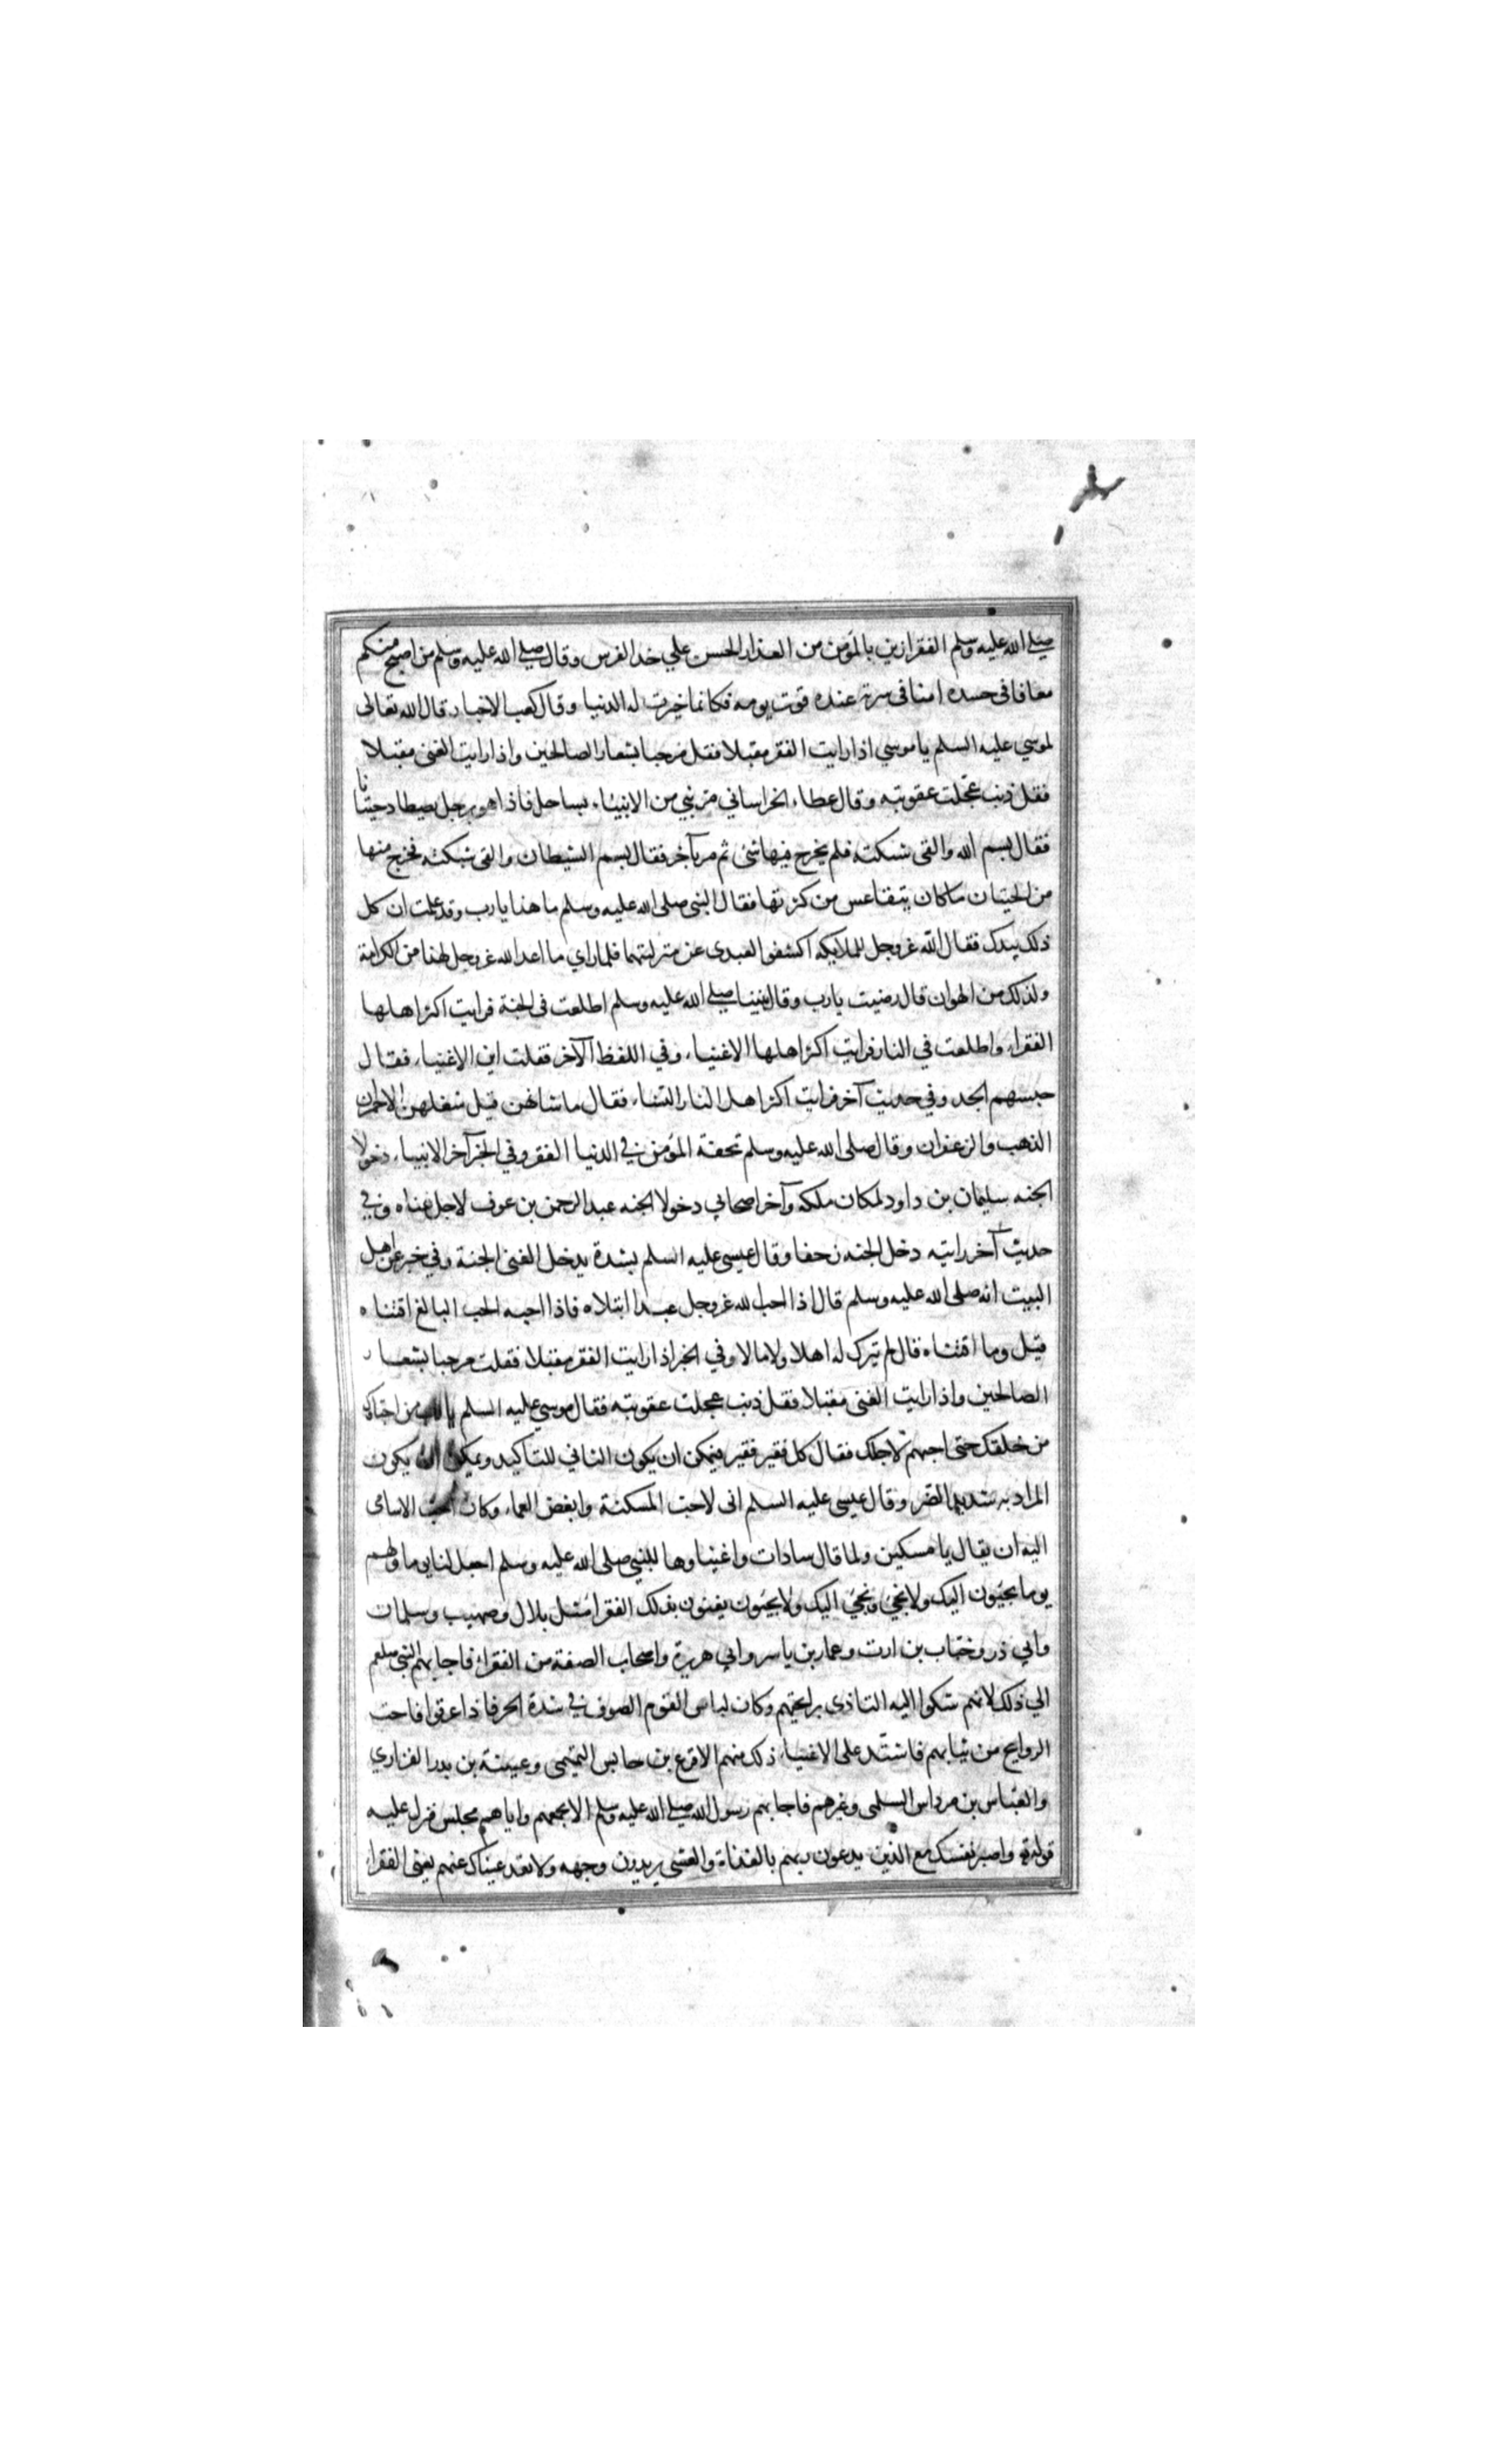 صلى الله عليه وسلم الفقر ازين بالمؤمن من العذار الحسن علي خد الفرس وقال صلى الله عليه وسلم من اصبح منكم
معافا في جسده امنا في سربه عنده قوت يومه فكانما خيرت له الدنيا وقال كعب الاخبار قال الله تعالى
لموسي عليه السلم يا موسي اذا رايت الفقر مقبلا فقل مرحبا بشعار الصالحين واذا رايت الغنى مقبلا
فقل ذنب عجلت عقوبته وقال عطاء الخراساني مر نبي من الانبياء بساحل فاذا هو برجل يصطاد حيتانا
فقال بسم الله والقى شبكته فلم يخرج فيها شئ ثم مر بآخر فقال بسم الشيطان والقى شبكته فخرج منها
من الحيتان ما كان يتقاعس من كثرتها فقال النبي صلى الله عليه وسلم ما هذا يا رب وقد علمت ان كل
ذلك بيدك فقال الله عزوجل للملايكه اكشفوا لعبدى عن منزلتهما فلما راي ما اعد الله عزوجل لهذا من الكرامة
ولذلك من الهوان قال رضيت يا رب وقال نبينا صلى الله عليه وسلم اطلعت في الجنة فرايت اكثر اهلها
الفقراء واطلعت في النار فرايت اكثر اهلها الاغنياء وفي اللفظ الآخر فقلت اين الاغنياء فقال
حبسهم الجد وفي حديث آخر فرايت اكثر اهل النار النساء فقال ما شانهن قيل شغلهن الاحمران
الذهب والزعفران وقال صلى الله عليه وسلم تحفة المؤمن في الدنيا الفقر وفي الخبر آخر الانبياء دخولا
الجنه سليمان بن داود لمكان ملكه وآخر اصحابي دخولا الجنه عبد الرحمن بن عوف لاجل غناه وفي
حديث آخر رايته دخل الجنه زحفا وقال عيسى عليه السلم بشدة يدخل الغنى الجنة وفي خبر عن اهل
البيت انه صلى الله عليه وسلم قال اذا احب الله عزوجل عبدا ابتلاه فاذا احبه الحب البالغ اقتناه
قيل وما اقتناه قال لم يترك له اهلا ولا مالا وفي الخبر اذا رايت الفقر مقبلا فقلت مرحبا بشعار
الصالحين واذا رايت الغنى مقبلا فقل ذنب عجلت عقوبته فقال موسي عليه السلم يا رب من احباك
من خلقك حتى احبهم لاجلك فقال كل فقير فقير فيمكن ان يكون الثاني للتاكيد ويمكن ان يكون
المراد به شديد الضر وقال عيسى عليه السلم انى لاحب المسكنة وابغض النعماء وكان احب الاسامى
اليه ان يقال يا مسكين ولما قال سادات واغنياوها للنبي صلى الله عليه وسلم اجعل لنا يوما ولهم
يوما يجيئون اليك ولا نجئ ونجئ اليك ولا يجيئون يعنون بذلك الفقرا مثل بلال وصهيب وسلمان
وابي ذر وخباب بن ارت وعمار بن ياسر وابي هريرة واصحاب الصفة من الفقراء فاجابهم النبي صلعم
الي ذلك لانهم شكوا اليه التاذى برايحتهم وكان لباس القوم الصوف في شدة الحر فاذا عرقوا فاحت
الروايح من ثيابهم فاشتد على الاغنياء ذلك منهم الاقرع بن حابس التميمى وعيينة بن بدر الفزاري
والعباس بن مرداس السلمى وغيرهم فاجابهم رسول الله صلى الله عليه وسلم الا يجمعهم واياهم مجلس فنزل عليه
قوله واصبر نفسك مع الذين يدعون ربهم بالغداة والعشى يريدون وجهه ولا تعد عيناك عنهم يعنى الفقرا